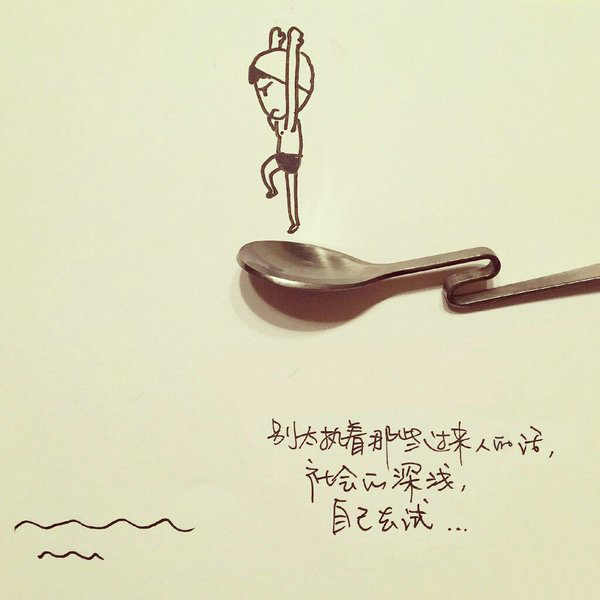 别太执着那些过来人的话,
社会的深浅,
自己去试...